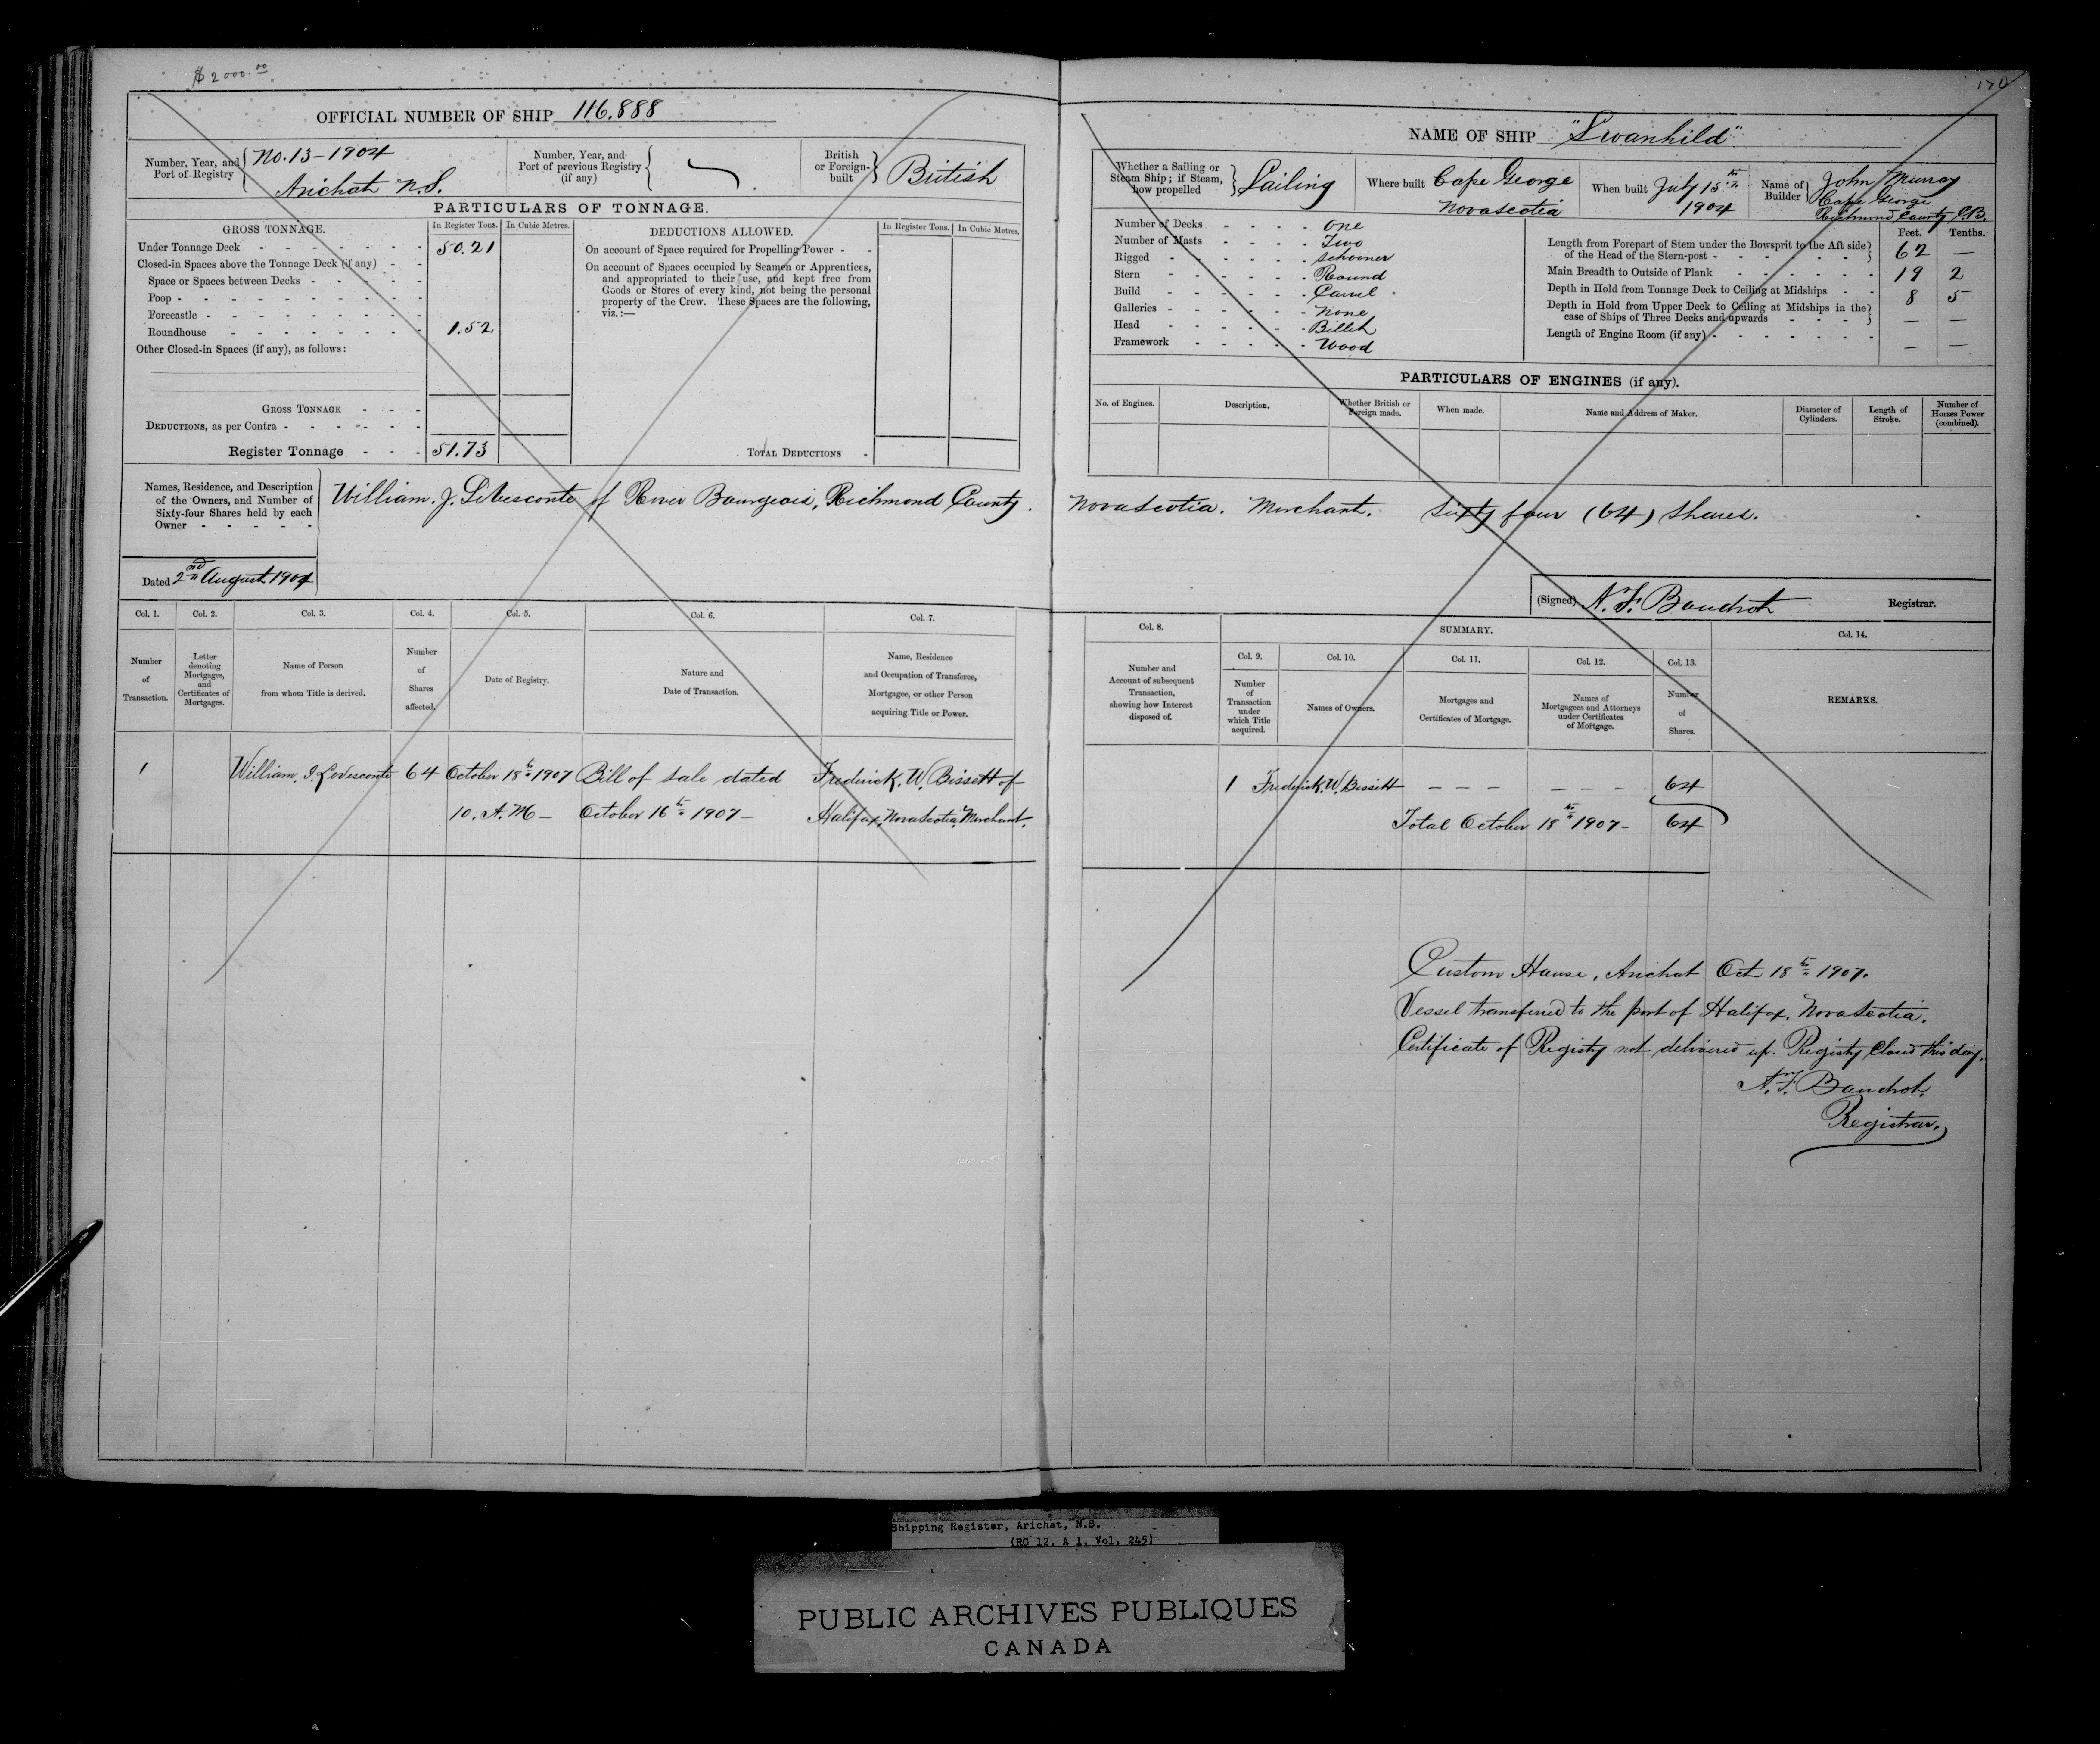 $2000.00
170
OFFICIAL NUMBER OF SHIP 116.888
Number, Year, and Port of Registry { No. 13 - 1904
Arichat N.S.
Number, Year, and Port of previous Registry (if any) {
British or Foreign-built } British
PARTICULARS OF TONNAGE.
GROSS TONNAGE. In Register Tons. In Cubic Metres.
Under Tonnage Deck - - - - - - - 50.21
Closed-in Spaces above the Tonnage Deck (if any) - -
Space or Spaces between Decks - - - - -
Poop - - - - - - - - - -
Forecastle - - - - - - - - -
Roundhouse - - - - - - - - 1.52
Other Closed-in Spaces (if any), as follows:
GROSS TONNAGE - - -
DEDUCTIONS, as per Contra - - - - - -
Register Tonnage - - - 51.73
DEDUCTIONS ALLOWED. In Register Tons. In Cubic Metres.
On account of Space required for Propelling Power - -
On account of Spaces occupied by Seamen or Apprentices,
and appropriated to their use, and kept free from
Goods or Stores of every kind, not being the personal
property of the Crew. These Spaces are the following,
viz.:—
TOTAL DEDUCTIONS -
NAME OF SHIP "Swanhild"
Whether a Sailing or Steam Ship; if Steam, how propelled } Sailing
Where built Cape George
Nova Scotia
When built July 15th
1904
Name of Builder } John Murray
Cape George
Richmond County C.B.
Number of Decks - - - - One
Number of Masts - - - - Two
Rigged - - - - - - Schooner
Stern - - - - - - Round
Build - - - - - - Carvel
Galleries - - - - - - None
Head - - - - - - Billet
Framework - - - - - Wood
Feet. Tenths.
Length from Forepart of Stem under the Bowsprit to the Aft side
of the Head of the Stern-post - - - - - - - } 62 —
Main Breadth to Outside of Plank - - - - - - 19 2
Depth in Hold from Tonnage Deck to Ceiling at Midships - - 8 5
Depth in Hold from Upper Deck to Ceiling at Midships in the
case of Ships of Three Decks and upwards - - - - } — —
Length of Engine Room (if any) - - - - - - - — —
PARTICULARS OF ENGINES (if any).
No. of Engines. Description. Whether British or Foreign made. When made. Name and Address of Maker. Diameter of Cylinders. Length of Stroke. Number of Horses Power (combined).
Names, Residence, and Description
of the Owners, and Number of
Sixty-four Shares held by each
Owner - - - - -
William. J. LeVesconte of River Bourgeois, Richmond County. Nova Scotia. Merchant. Sixty four (64) Shares.
Dated 2nd August 1904
(Signed) A. F. Boudrot Registrar.
Col. 1. Col. 2. Col. 3. Col. 4. Col. 5. Col. 6. Col. 7.
Number of Transaction.
Letter denoting Mortgages, and Certificates of Mortgages.
Name of Person from whom Title is derived.
Number of Shares affected.
Date of Registry.
Nature and Date of Transaction.
Name, Residence and Occupation of Transferee, Mortgagee, or other Person acquiring Title or Power.
1 William. J. LeVesconte 64 October 18th 1907 Bill of sale dated Frederick. W. Bissett of
10. A.M — October 16th 1907 — Halifax, Nova Scotia, Merchant.
Col. 8. SUMMARY. Col. 14.
Col. 9. Col. 10. Col. 11. Col. 12. Col. 13.
Number and Account of subsequent Transaction, showing how Interest disposed of.
Number of Transaction under which Title acquired.
Names of Owners.
Mortgages and Certificates of Mortgage.
Names of Mortgagees and Attorneys under Certificates of Mortgage.
Number of Shares.
REMARKS.
1 Frederick. W. Bissett - - - - - - 64
Total October 18th 1907 - 64
Custom House, Arichat Oct 18th 1907.
Vessel transferred to the port of Halifax, Nova Scotia.
Certificate of Registry not delivered up. Registry Closed this day.
A. F. Boudrot.
Registrar.
Shipping Register, Arichat, N.S.
(RG 12, A 1, Vol. 245)
PUBLIC ARCHIVES PUBLIQUES
CANADA